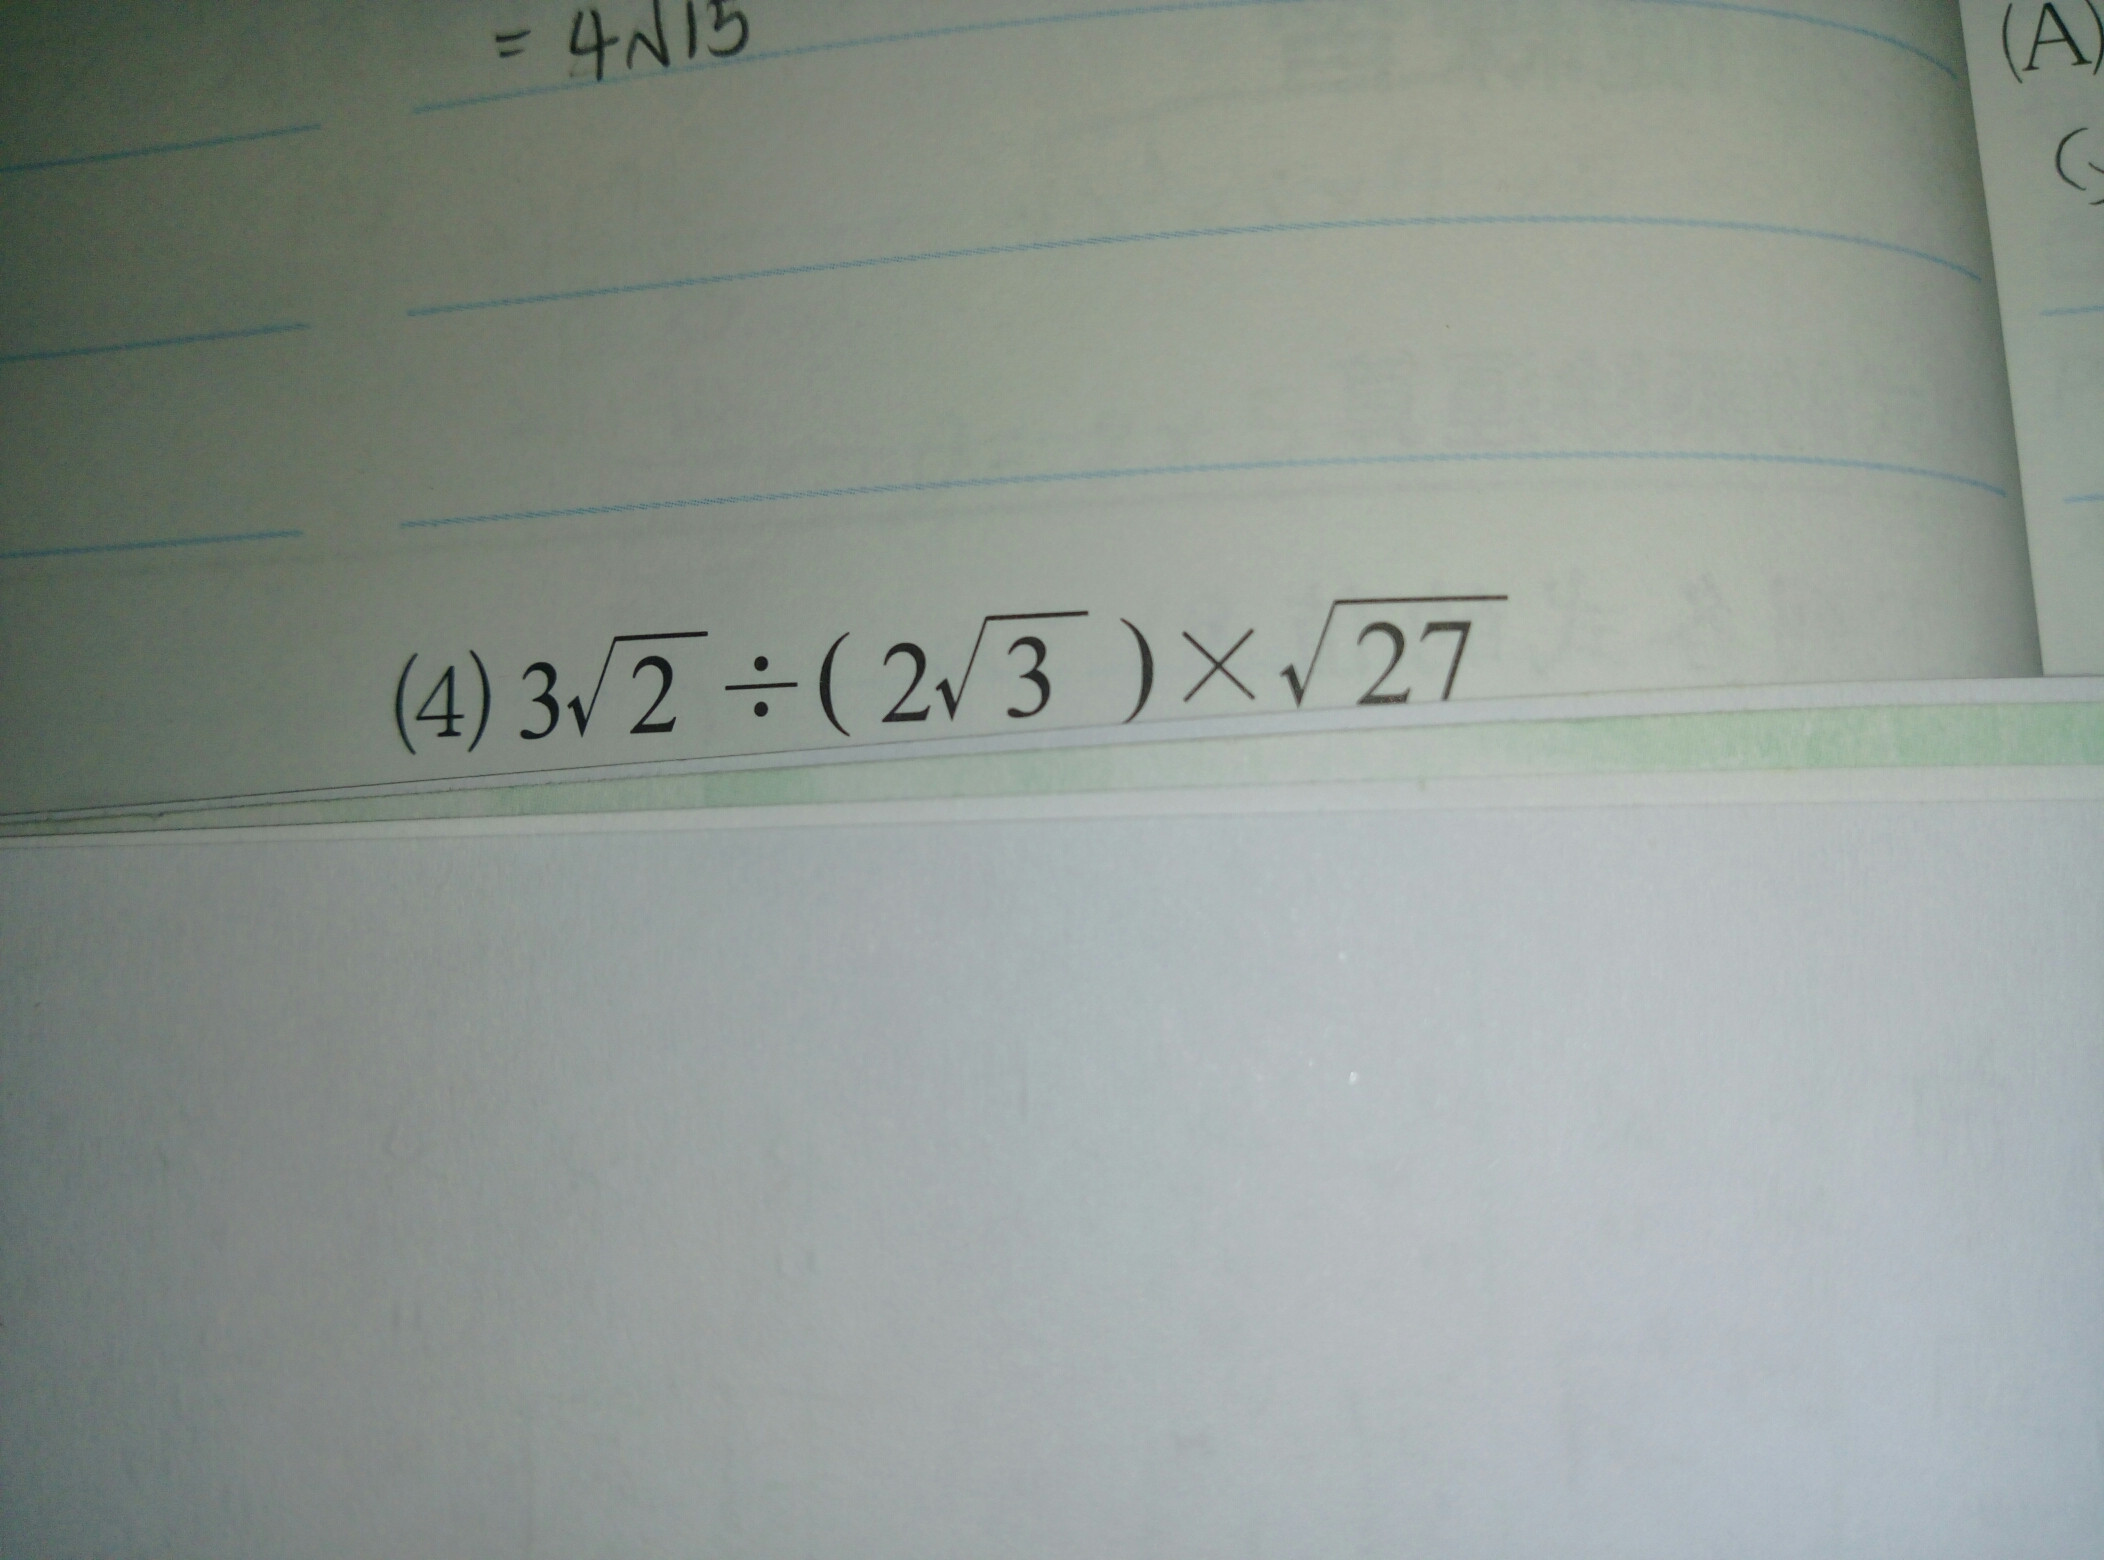 = 4√15
(A)
(4) 3√2 ÷ ( 2√3 ) × √27